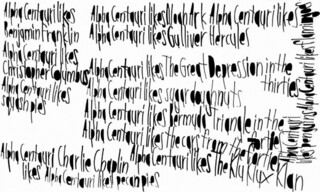 Alpha Centauri likes
Benjamin Franklin
Alpha Centauri likes
Christoper Columbus
Alpha Centauri likes
squash pies
Alpha Centauri likes Noah Ark Alpha Centauri likes
Alpha Centauri likes Gulliver Hercules
Alpha Centauri likes The Great Depression in the
thirties
Alpha Centauri likes sugar doughnuts
Alpha Centauri likes Bermuda Triangle in the
Alpha Centauri likes the cars from the forties
Alpha Centauri likes The Ku Klux Klan
Alpha Centauri Charlie Chaplin
likes Alpha Centauri likes pecan pies